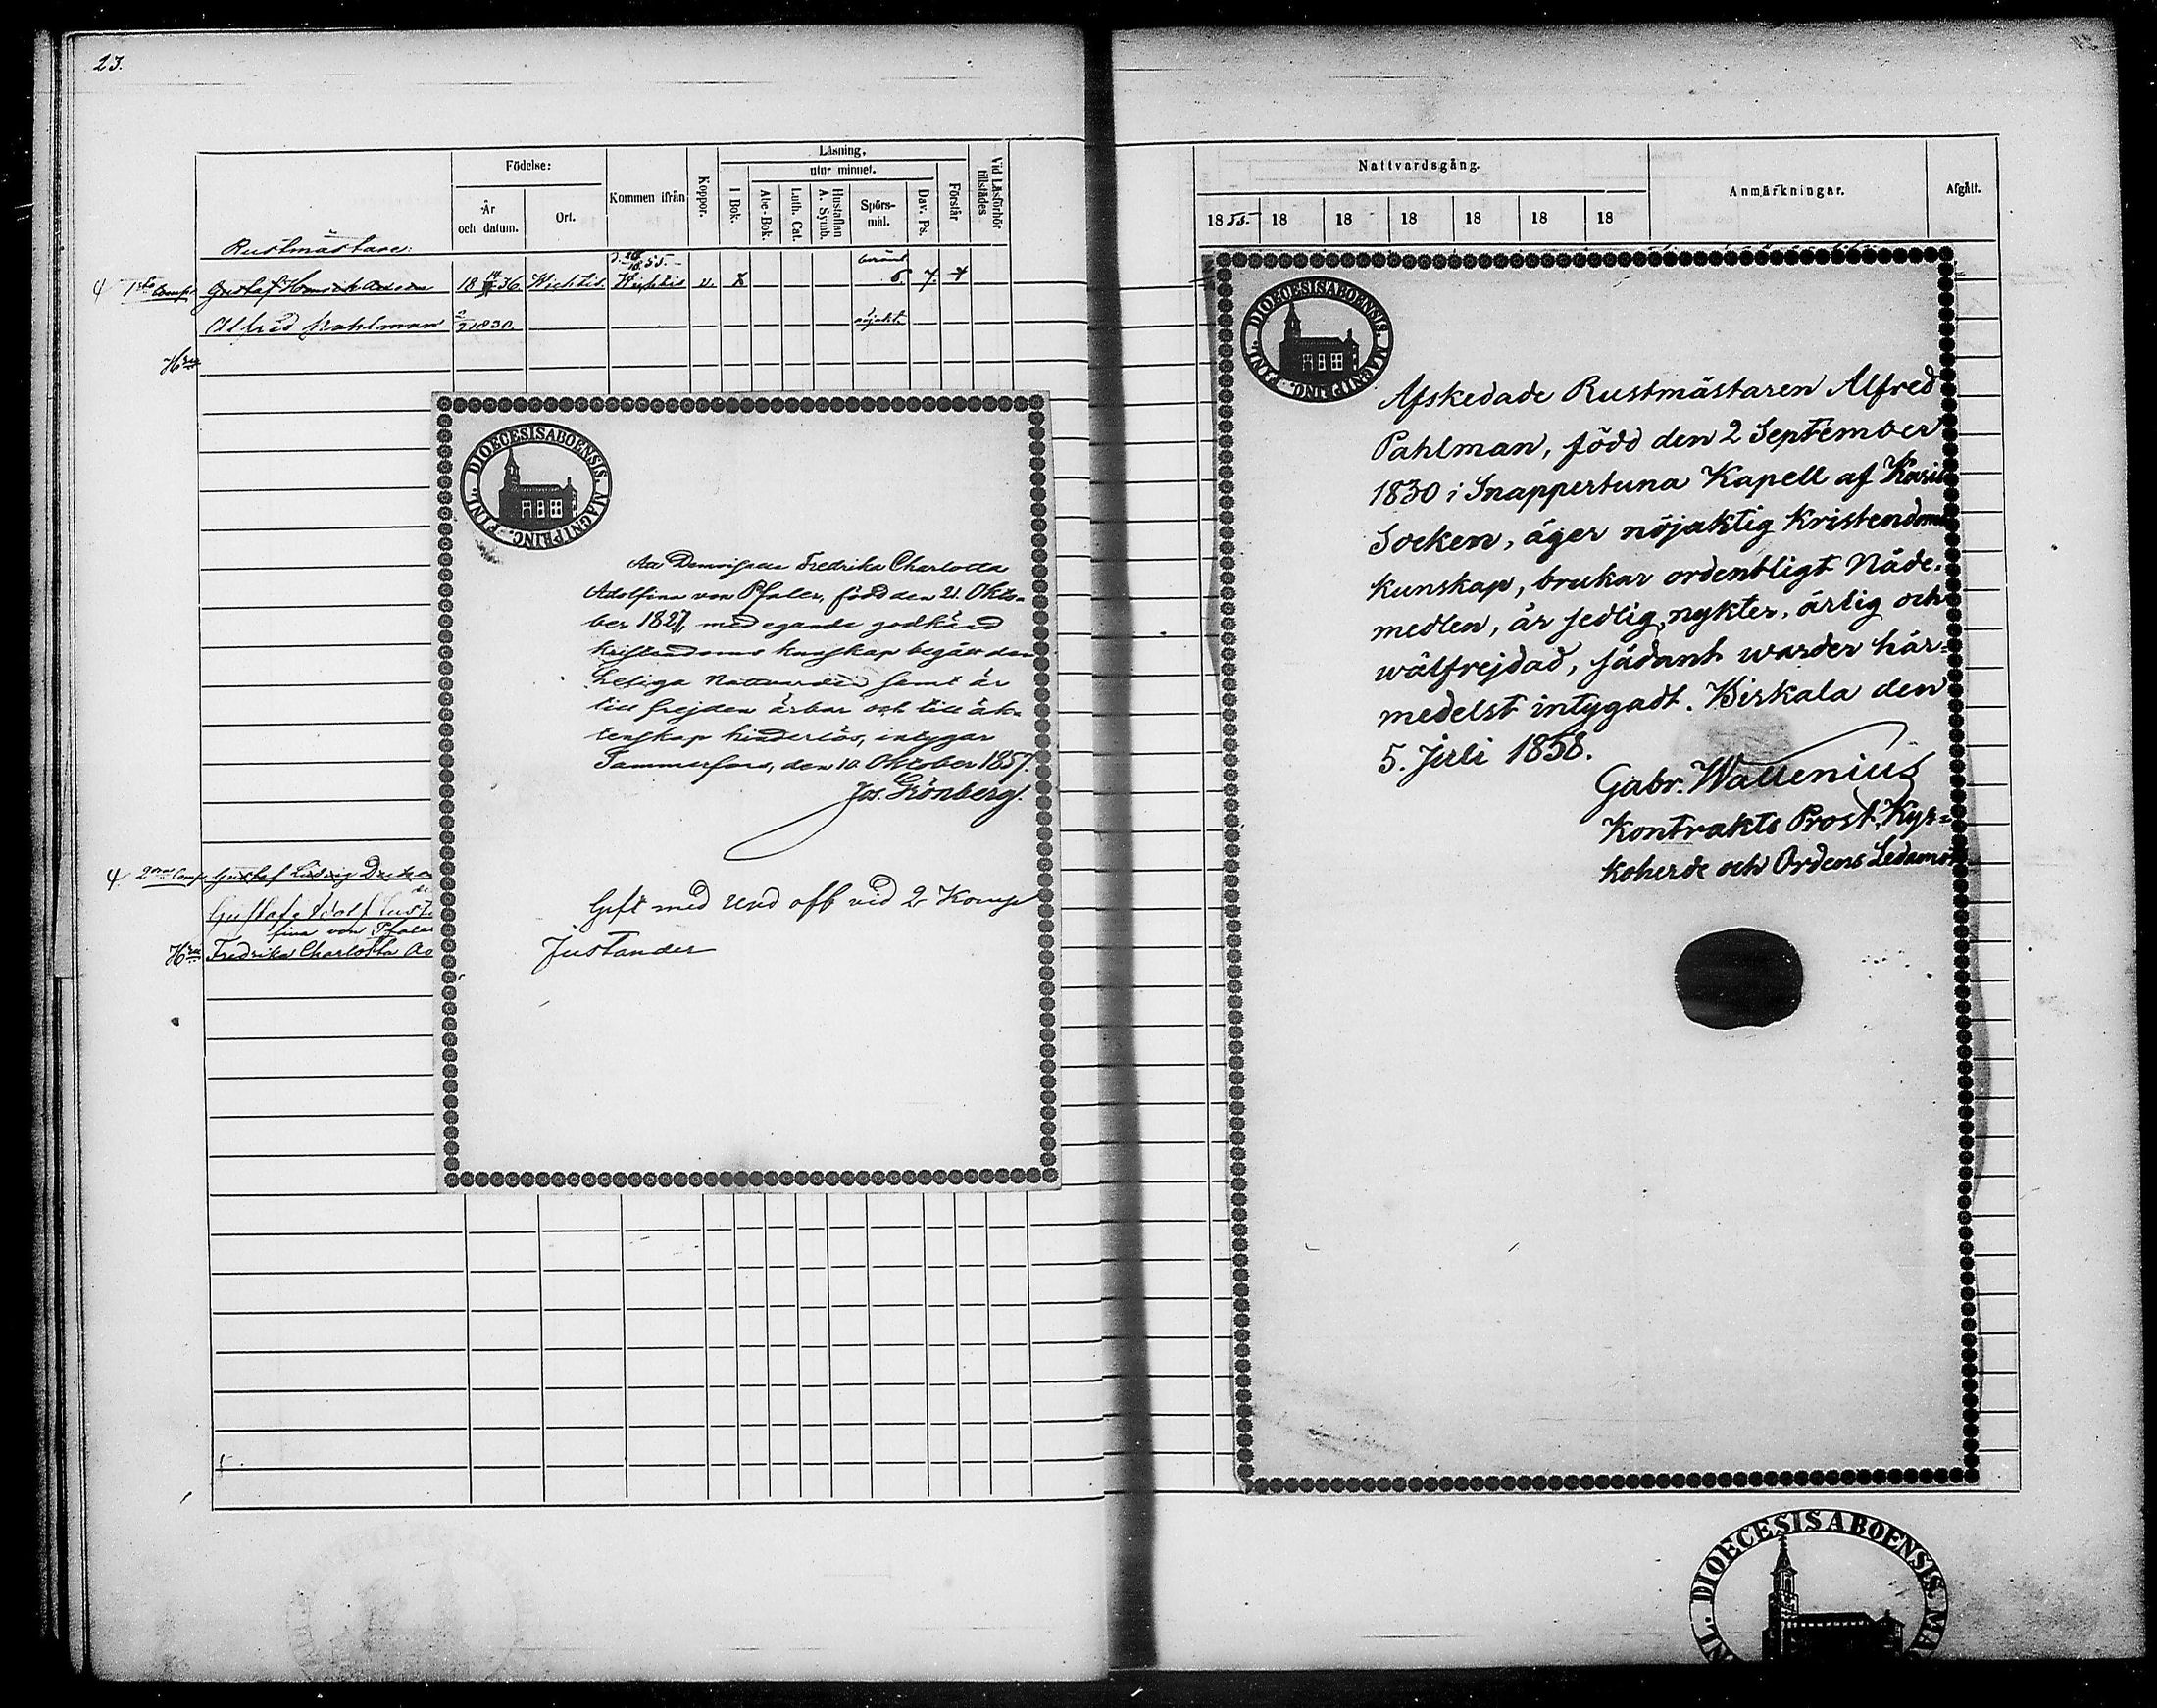 23.
Födelse:
År
och datum.
Ort.
Kommen ifrån
Koppor.
Läsning,
utur minnet.
I Bok.
Abc-Bok.
Luth. Cat.
Hustaflan
A. Symb.
Spörs-
mål.
Dav. Ps.
Förstår
Vid Läsförhör
tillstädes
Rustmästare:
1sta Comp.
Gustaf Henrik
36. Wichtis. Wichtis v.
6. 7.
Alfred Pahlman 2/9 1830.
nöjakt.
Hru
2dra Comp. Gustaf Ludvig
Gustaf Adolf Just
fina von Pfaler
Hru Fredrika Charlotta Ad
DIOECESIS ABOENSIS. MAGNI PRINC. FINL.
Att Demoiselle Fredrika Charlotta
Adolfina von Pfaler, född den 21. Okto-
ber 1827, med egande godkänd
kristendoms kunskap begått den
heliga Nattvarden samt är
till frejden ärbar och till äk-
tenskap hinderlös, intygar
Tammerfors, den 10 Oktober 1857.
Jos. Grönberg.
Gift med Und. off. vid 2. Komp
Justander
Nattvardsgång.
Anmärkningar.
Afgått.
1855 18 18 18 18 18 18
DIOECESIS ABOENSIS. MAGNI PRINC. FINL.
Afskedade Rustmästaren Alfred
Pahlman, född den 2 September
1830 i Snappertuna Kapell af Karis
Socken, äger nöjaktig Kristendoms
kunskap, brukar ordentligt Nåde-
medlen, är sedlig, nykter, ärlig och
wälfrejdad, sådant warder här-
medelst intygadt. Birkala den
5. Juli 1858.
Gabr. Wallenius
Kontrakts Prost, Kyr-
koherde och Ordens Ledamot
NL. DIOECESIS ABOENSIS. MA